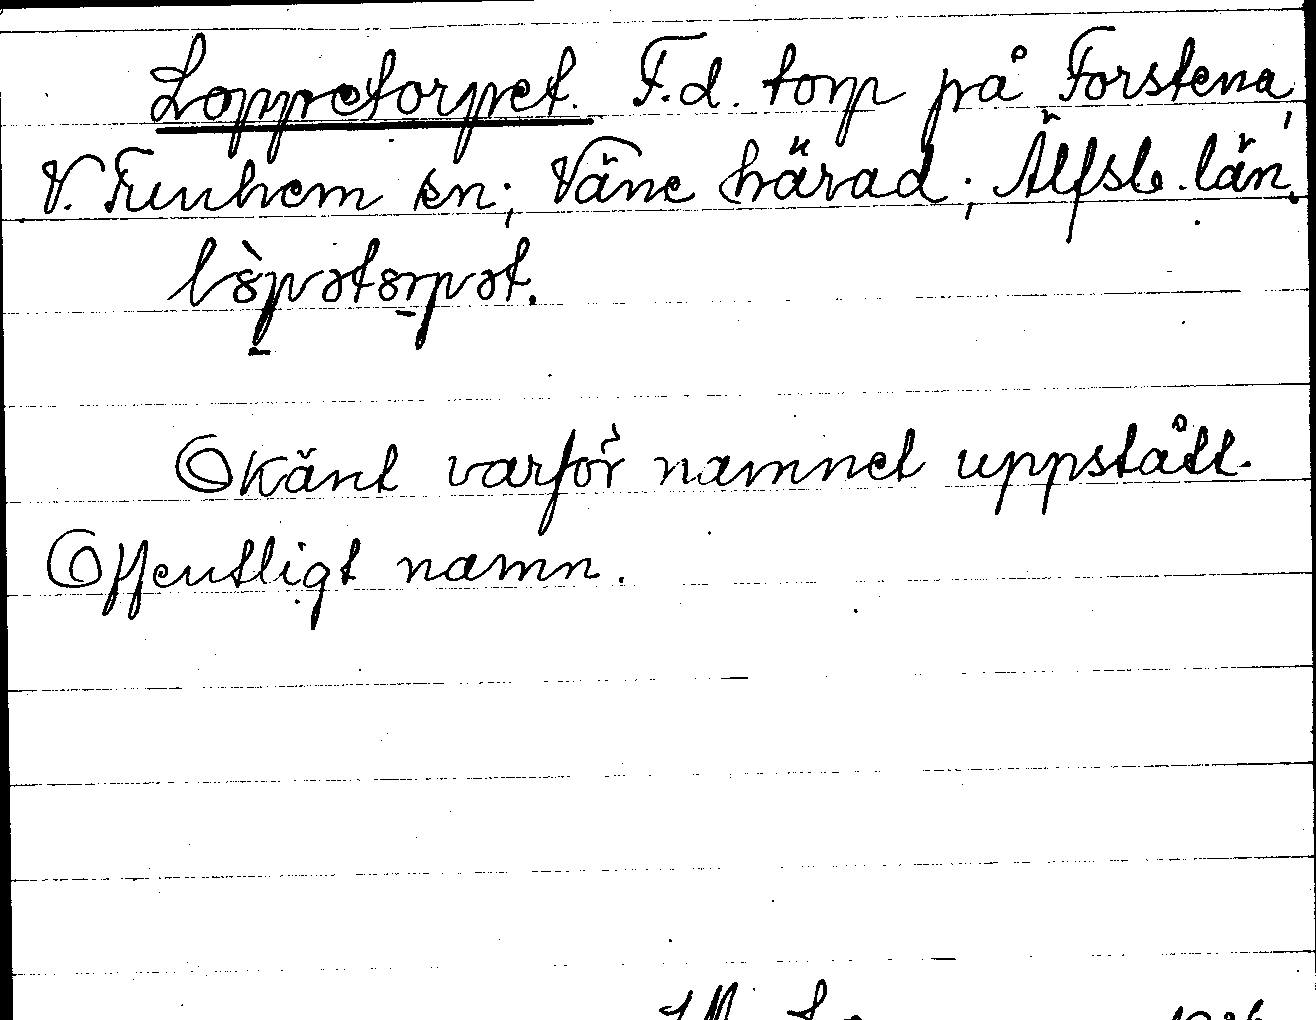 Loppetorpet. F.d. torp på Forstena,
V. Tunhem sn; Väne härad; Älfsb. län.
lòpətorpət.
Okänt varför namnet uppstått.
Offentligt namn.